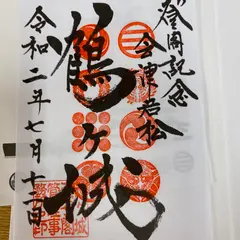 登閣記念
会津若松
鶴ヶ城
令和二年七月十二日